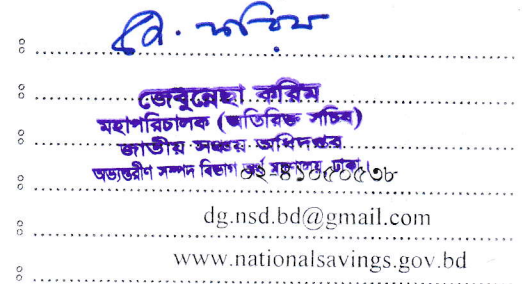 জে. করিম
জেবুন্নেছা করিম
মহাপরিচালক (অতিরিক্ত সচিব)
জাতীয় সঞ্চয় অধিদপ্তর
অভ্যন্তরীণ সম্পদ বিভাগ অর্থ মন্ত্রণালয়, ঢাকা।
০২-৪১০৫০৫৩৮
dg.nsd.bd@gmail.com
www.nationalsavings.gov.bd